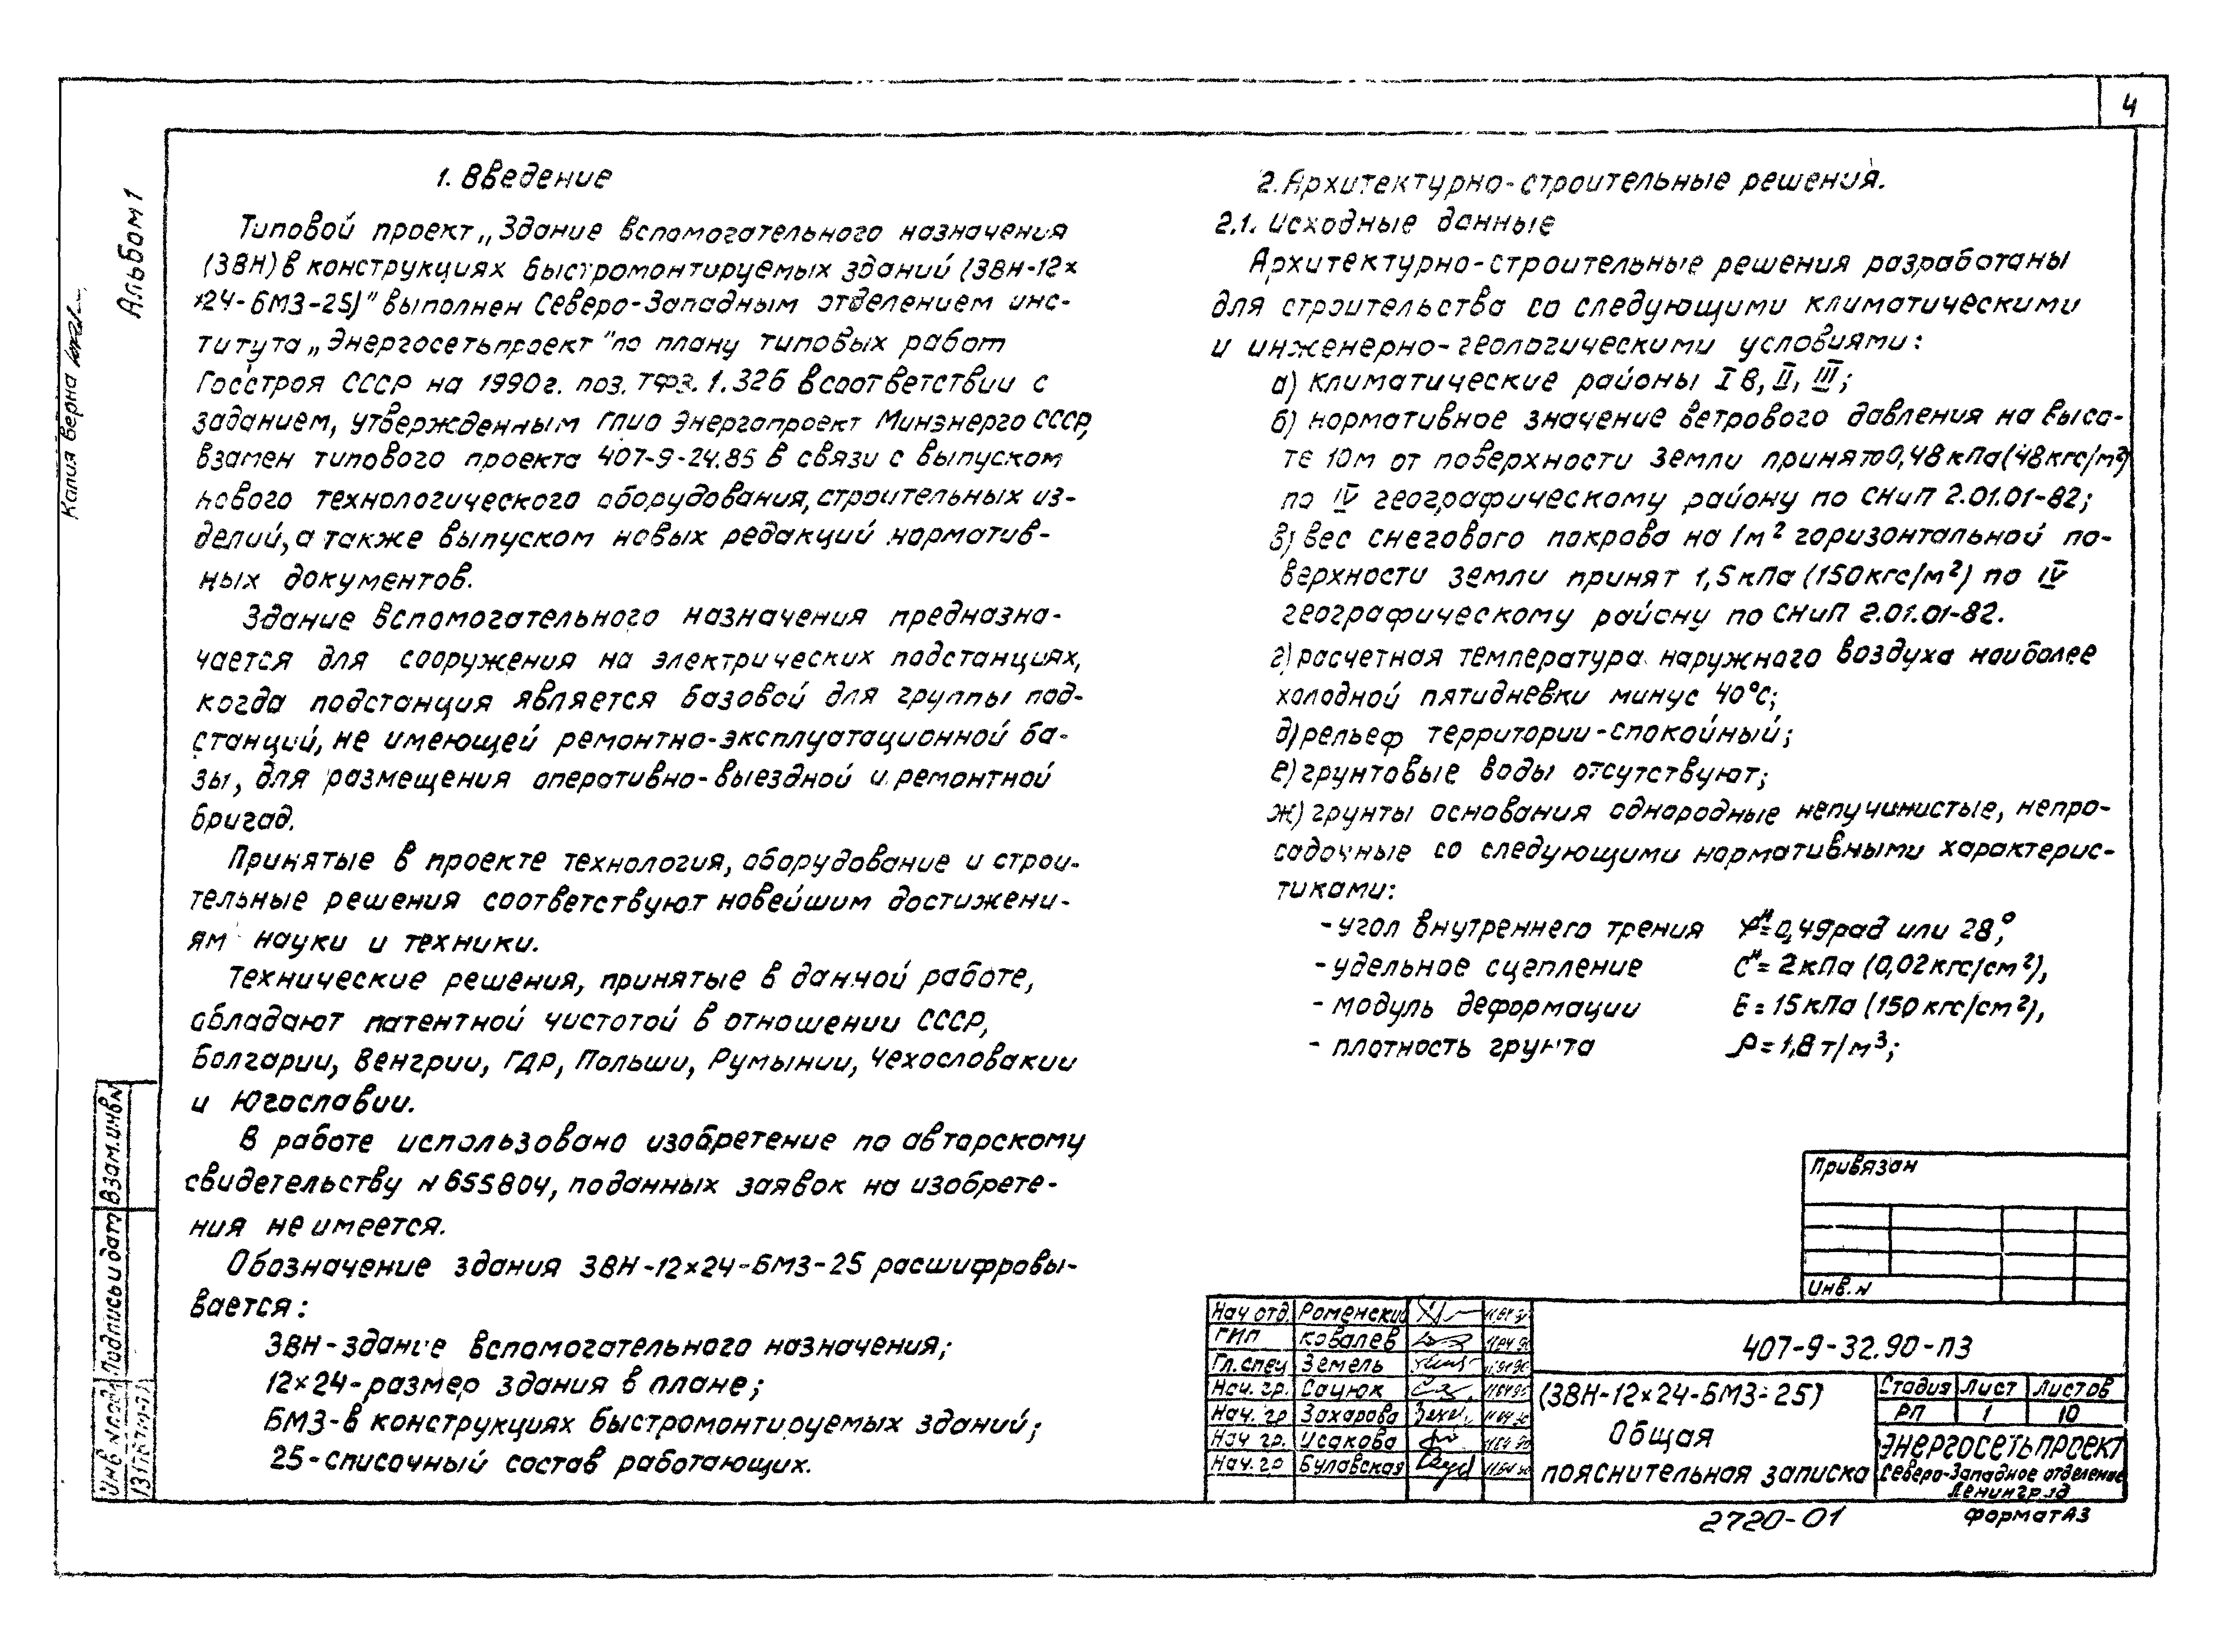 4
Альбом 1
Копия верна
1. Введение
Типовой проект „Здание вспомогательного назначения
(ЗВН) в конструкциях быстромонтируемых зданий (ЗВН-12×
×24-БМЗ-25)" выполнен Северо-Западным отделением инс-
титута „Энергосетьпроект" по плану типовых работ
Госстроя СССР на 1990г. поз. ТФ3.1.326 в соответствии с
заданием, утвержденным ГПИО Энергопроект Минэнерго СССР,
взамен типового проекта 407-9-24.85 в связи с выпуском
нового технологического оборудования, строительных из-
делий, а также выпуском новых редакций норматив-
ных документов.
Здание вспомогательного назначения предназна-
чается для сооружения на электрических подстанциях,
когда подстанция является базовой для группы под-
станций, не имеющей ремонтно-эксплуатационной ба-
зы, для размещения оперативно-выездной и ремонтной
бригад.
Принятые в проекте технология, оборудование и строи-
тельные решения соответствуют новейшим достижени-
ям науки и техники.
Технические решения, принятые в данной работе,
обладают патентной чистотой в отношении СССР,
Болгарии, Венгрии, ГДР, Польши, Румынии, Чехословакии
и Югославии.
В работе использовано изобретение по авторскому
свидетельству N 655804, поданных заявок на изобрете-
ния не имеется.
Обозначение здания ЗВН-12×24-БМЗ-25 расшифровы-
вается:
ЗВН-здание вспомогательного назначения;
12×24-размер здания в плане;
БМЗ-в конструкциях быстромонтируемых зданий;
25-списочный состав работающих.
2. Архитектурно-строительные решения.
2.1. Исходные данные
Архитектурно-строительные решения разработаны
для строительства со следующими климатическими
и инженерно-геологическими условиями:
а) климатические районы I В, II, III;
б) нормативное значение ветрового давления на высо-
те 10м от поверхности земли принято 0,48 кПа (48кгс/м²)
по IV географическому району по СНиП 2.01.01-82;
в) вес снегового покрова на 1м² горизонтальной по-
верхности земли принят 1,5кПа (150кгс/м²) по IV
географическому району по СНиП 2.01.01-82.
г) расчетная температура наружного воздуха наиболее
холодной пятидневки минус 40°С;
д) рельеф территории-спокойный;
е) грунтовые воды отсутствуют;
ж) грунты основания однородные непучинистые, непро-
садочные со следующими нормативными характерис-
тиками:
-угол внутреннего трения φᴴ=0,49рад или 28°,
-удельное сцепление Сᴴ=2кПа (0,02кгс/см²),
- модуль деформации Е=15кПа (150кгс/см²),
- плотность грунта ρ=1,8т/м³;
Привязан
Инв. N
Нач отд. Роменский
ГИП Ковалев
Гл. спец Земель
Нач. гр. Сацюк
Нач. гр Захарова
Нач гр. Исакова
Нач. гр Булавская
407-9-32.90-ПЗ
(ЗВН-12×24-БМЗ-25)
Общая
пояснительная записка
Стадия Лист Листов
РП 1 10
Энергосетьпроект
Северо-Западное отделение
Ленинград
2720-01 Формат А3
Взам. инв N
Подпись и дата
Инв N подл